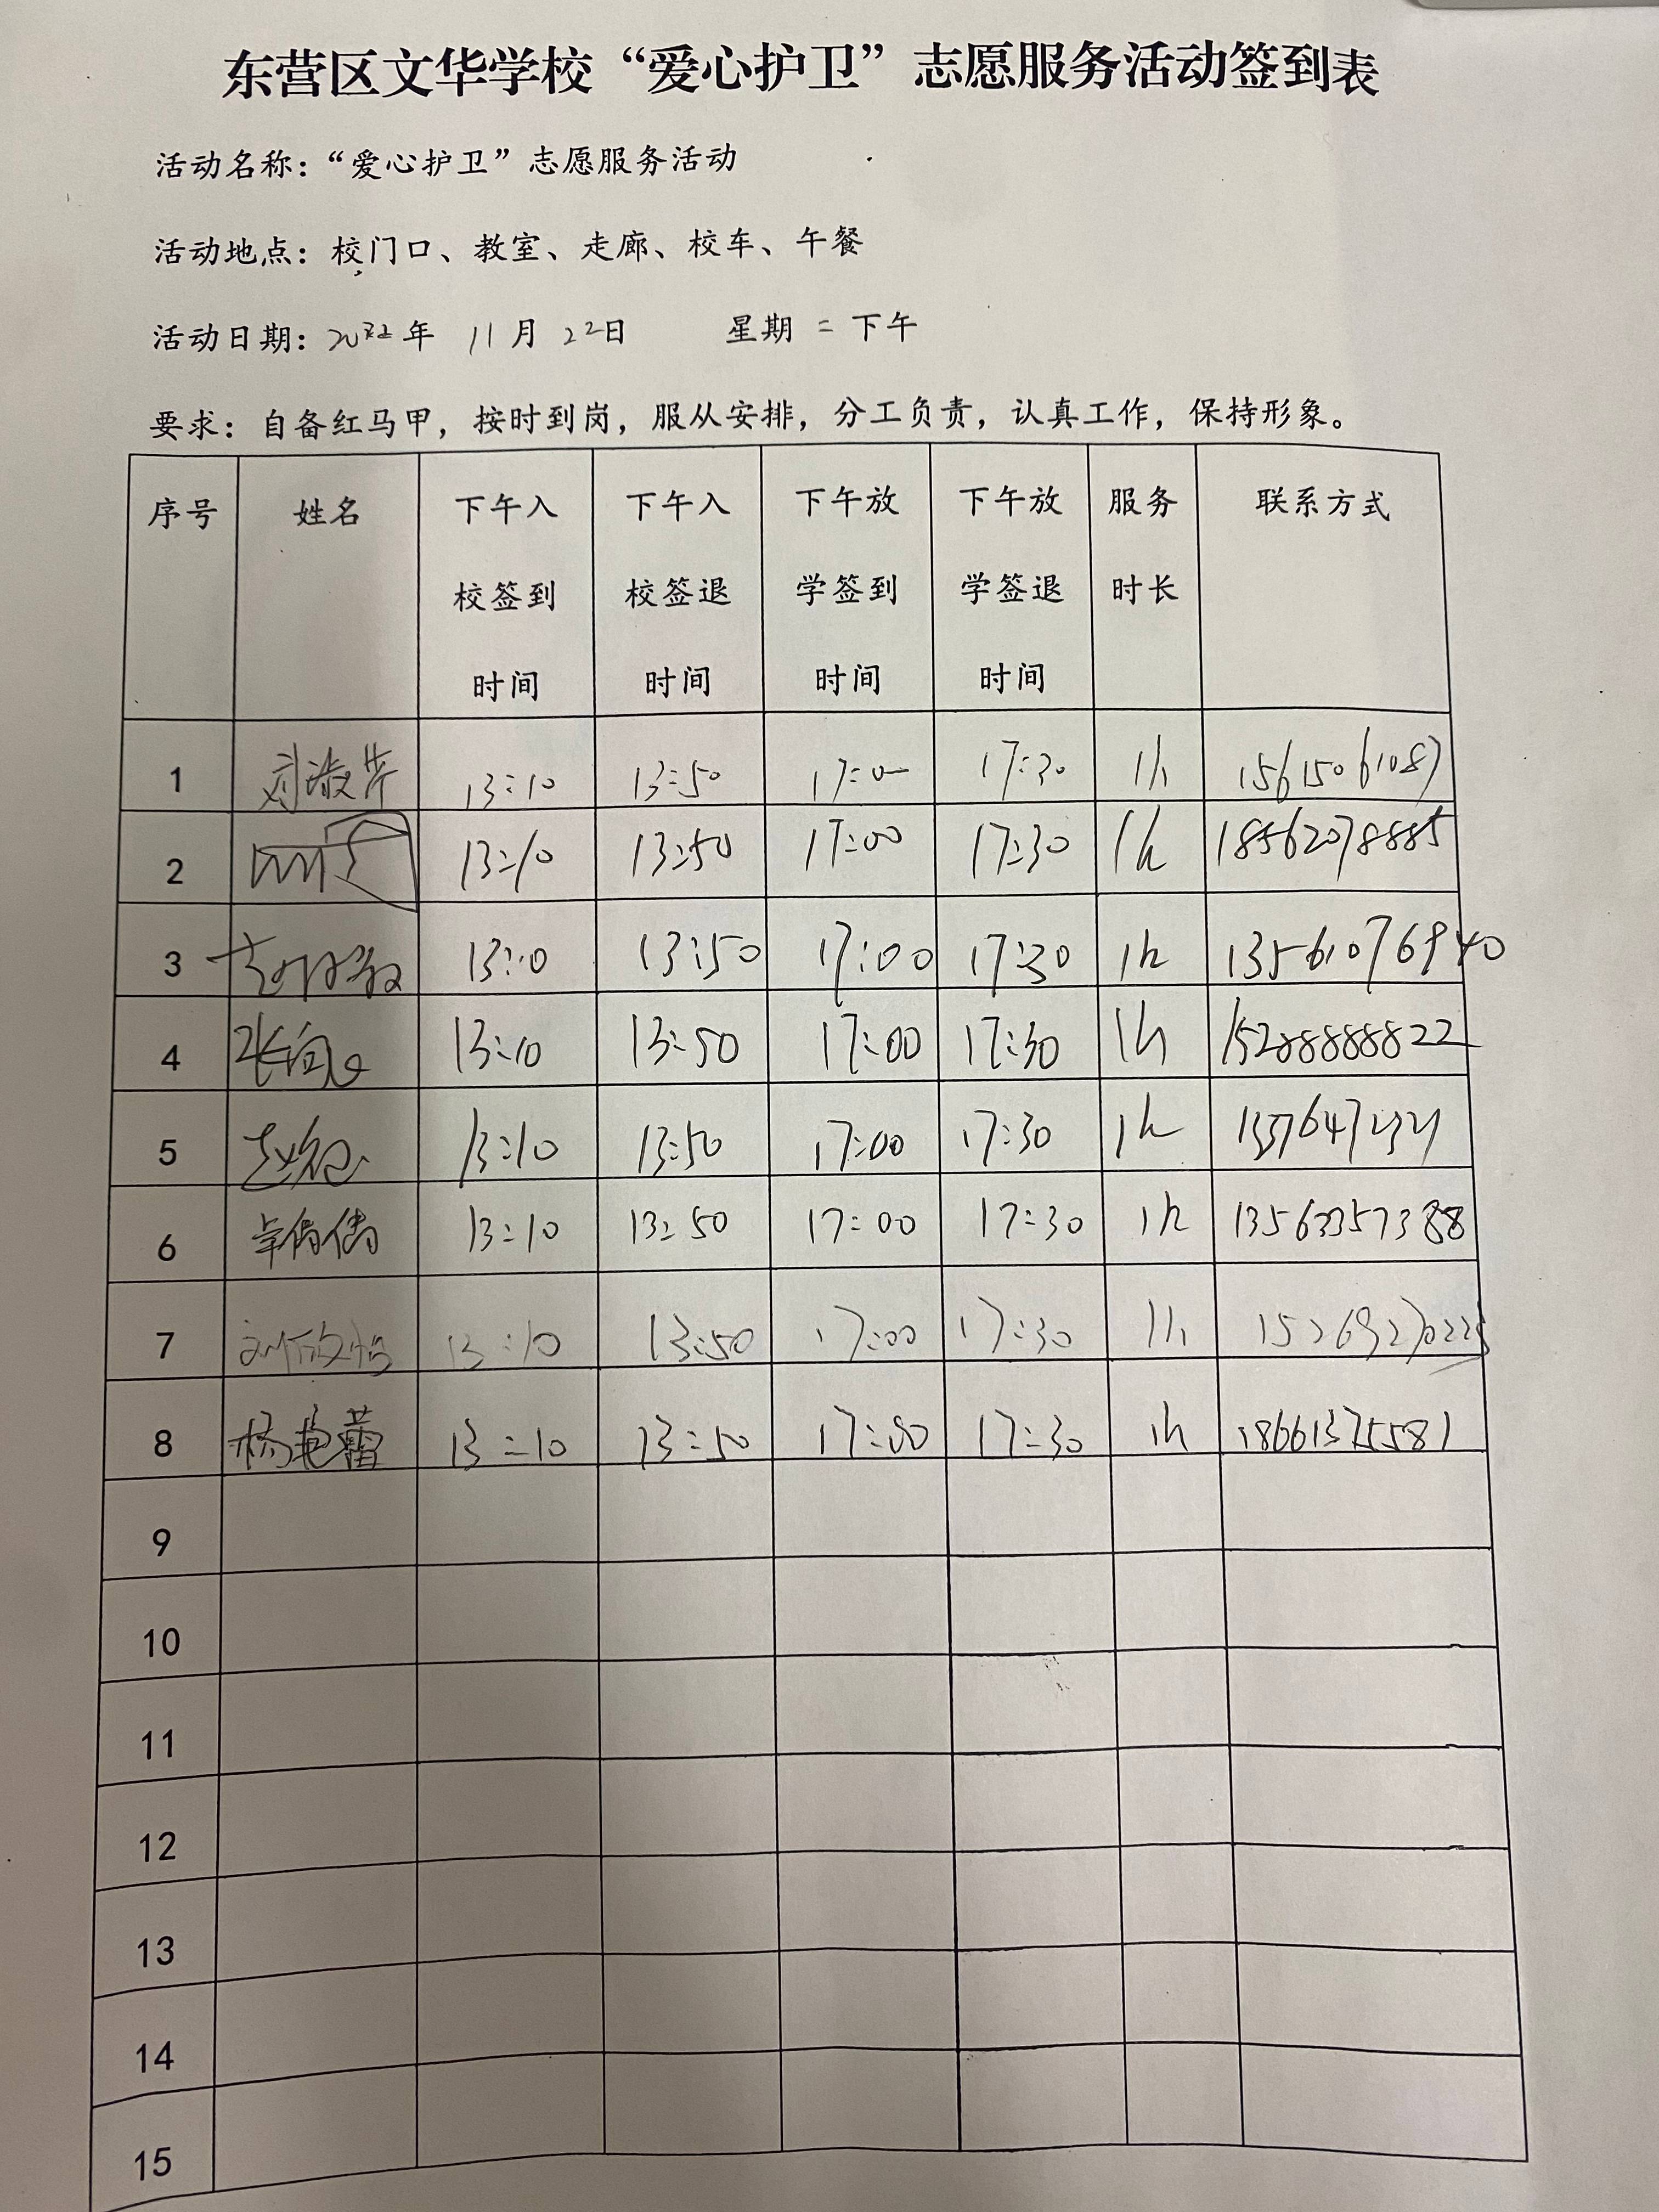 东营区文华学校“爱心护卫”志愿服务活动签到表
活动名称：“爱心护卫”志愿服务活动
活动地点：校门口、教室、走廊、校车、午餐
活动日期：2022年 11月 22日 星期二下午
要求：自备红马甲，按时到岗，服从安排，分工负责，认真工作，保持形象。
序号 姓名 下午入校签到时间 下午入校签退时间 下午放学签到时间 下午放学签退时间 服务时长 联系方式
1 刘淑芹 13:10 13:50 17:00 17:30 1h 15615061087
2 13:10 13:50 17:00 17:30 1h 18562078885
3 13:10 13:50 17:00 17:30 1h 13561076940
4 13:10 13:50 17:00 17:30 1h 15288888822
5 13:10 13:50 17:00 17:30 1h
6 13:10 13:50 17:00 17:30 1h 13563357388
7 13:10 13:50 17:00 17:30 1h
8 杨艳蕾 13:10 13:50 17:00 17:30 1h 18661375581
9
10
11
12
13
14
15